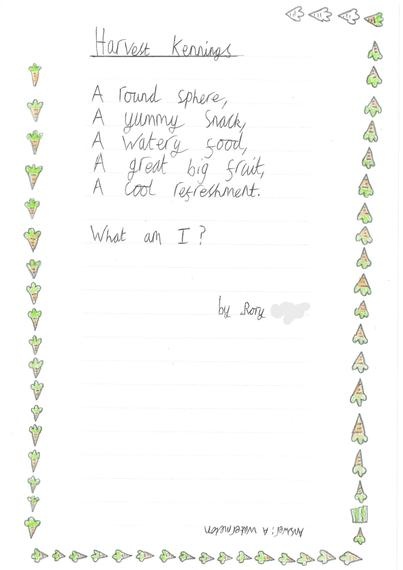 Harvest Kennings
A round sphere,
A yummy snack,
A watery food,
A great big fruit,
A cool refreshment.
What am I?
by Rory
Answer: A watermelon